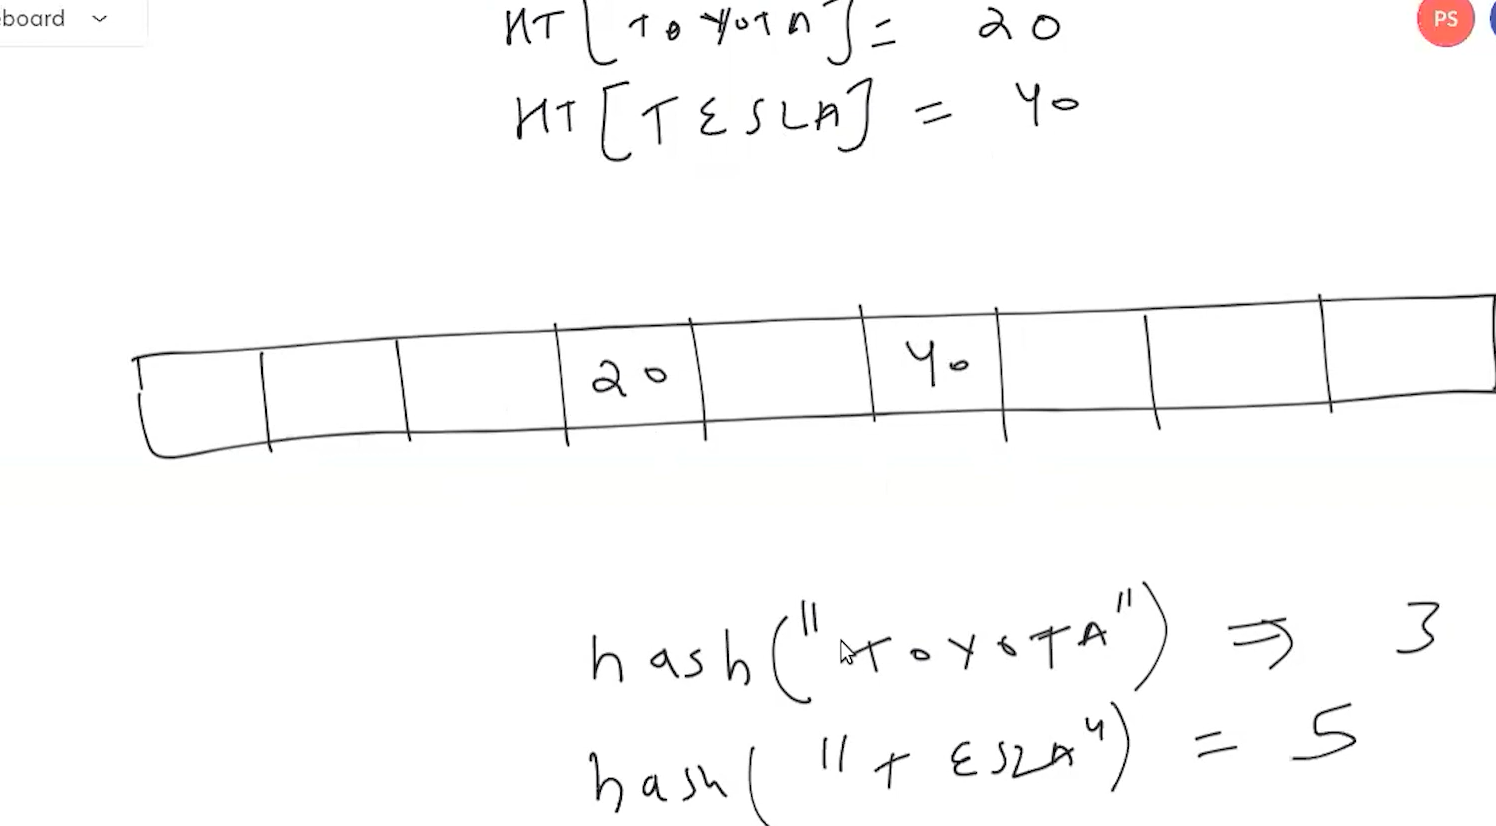 board PS
HT[TOYOTA] = 20
HT[TESLA] = 40
20 40
hash("TOYOTA") ⇒ 3
hash("TESLA") = 5